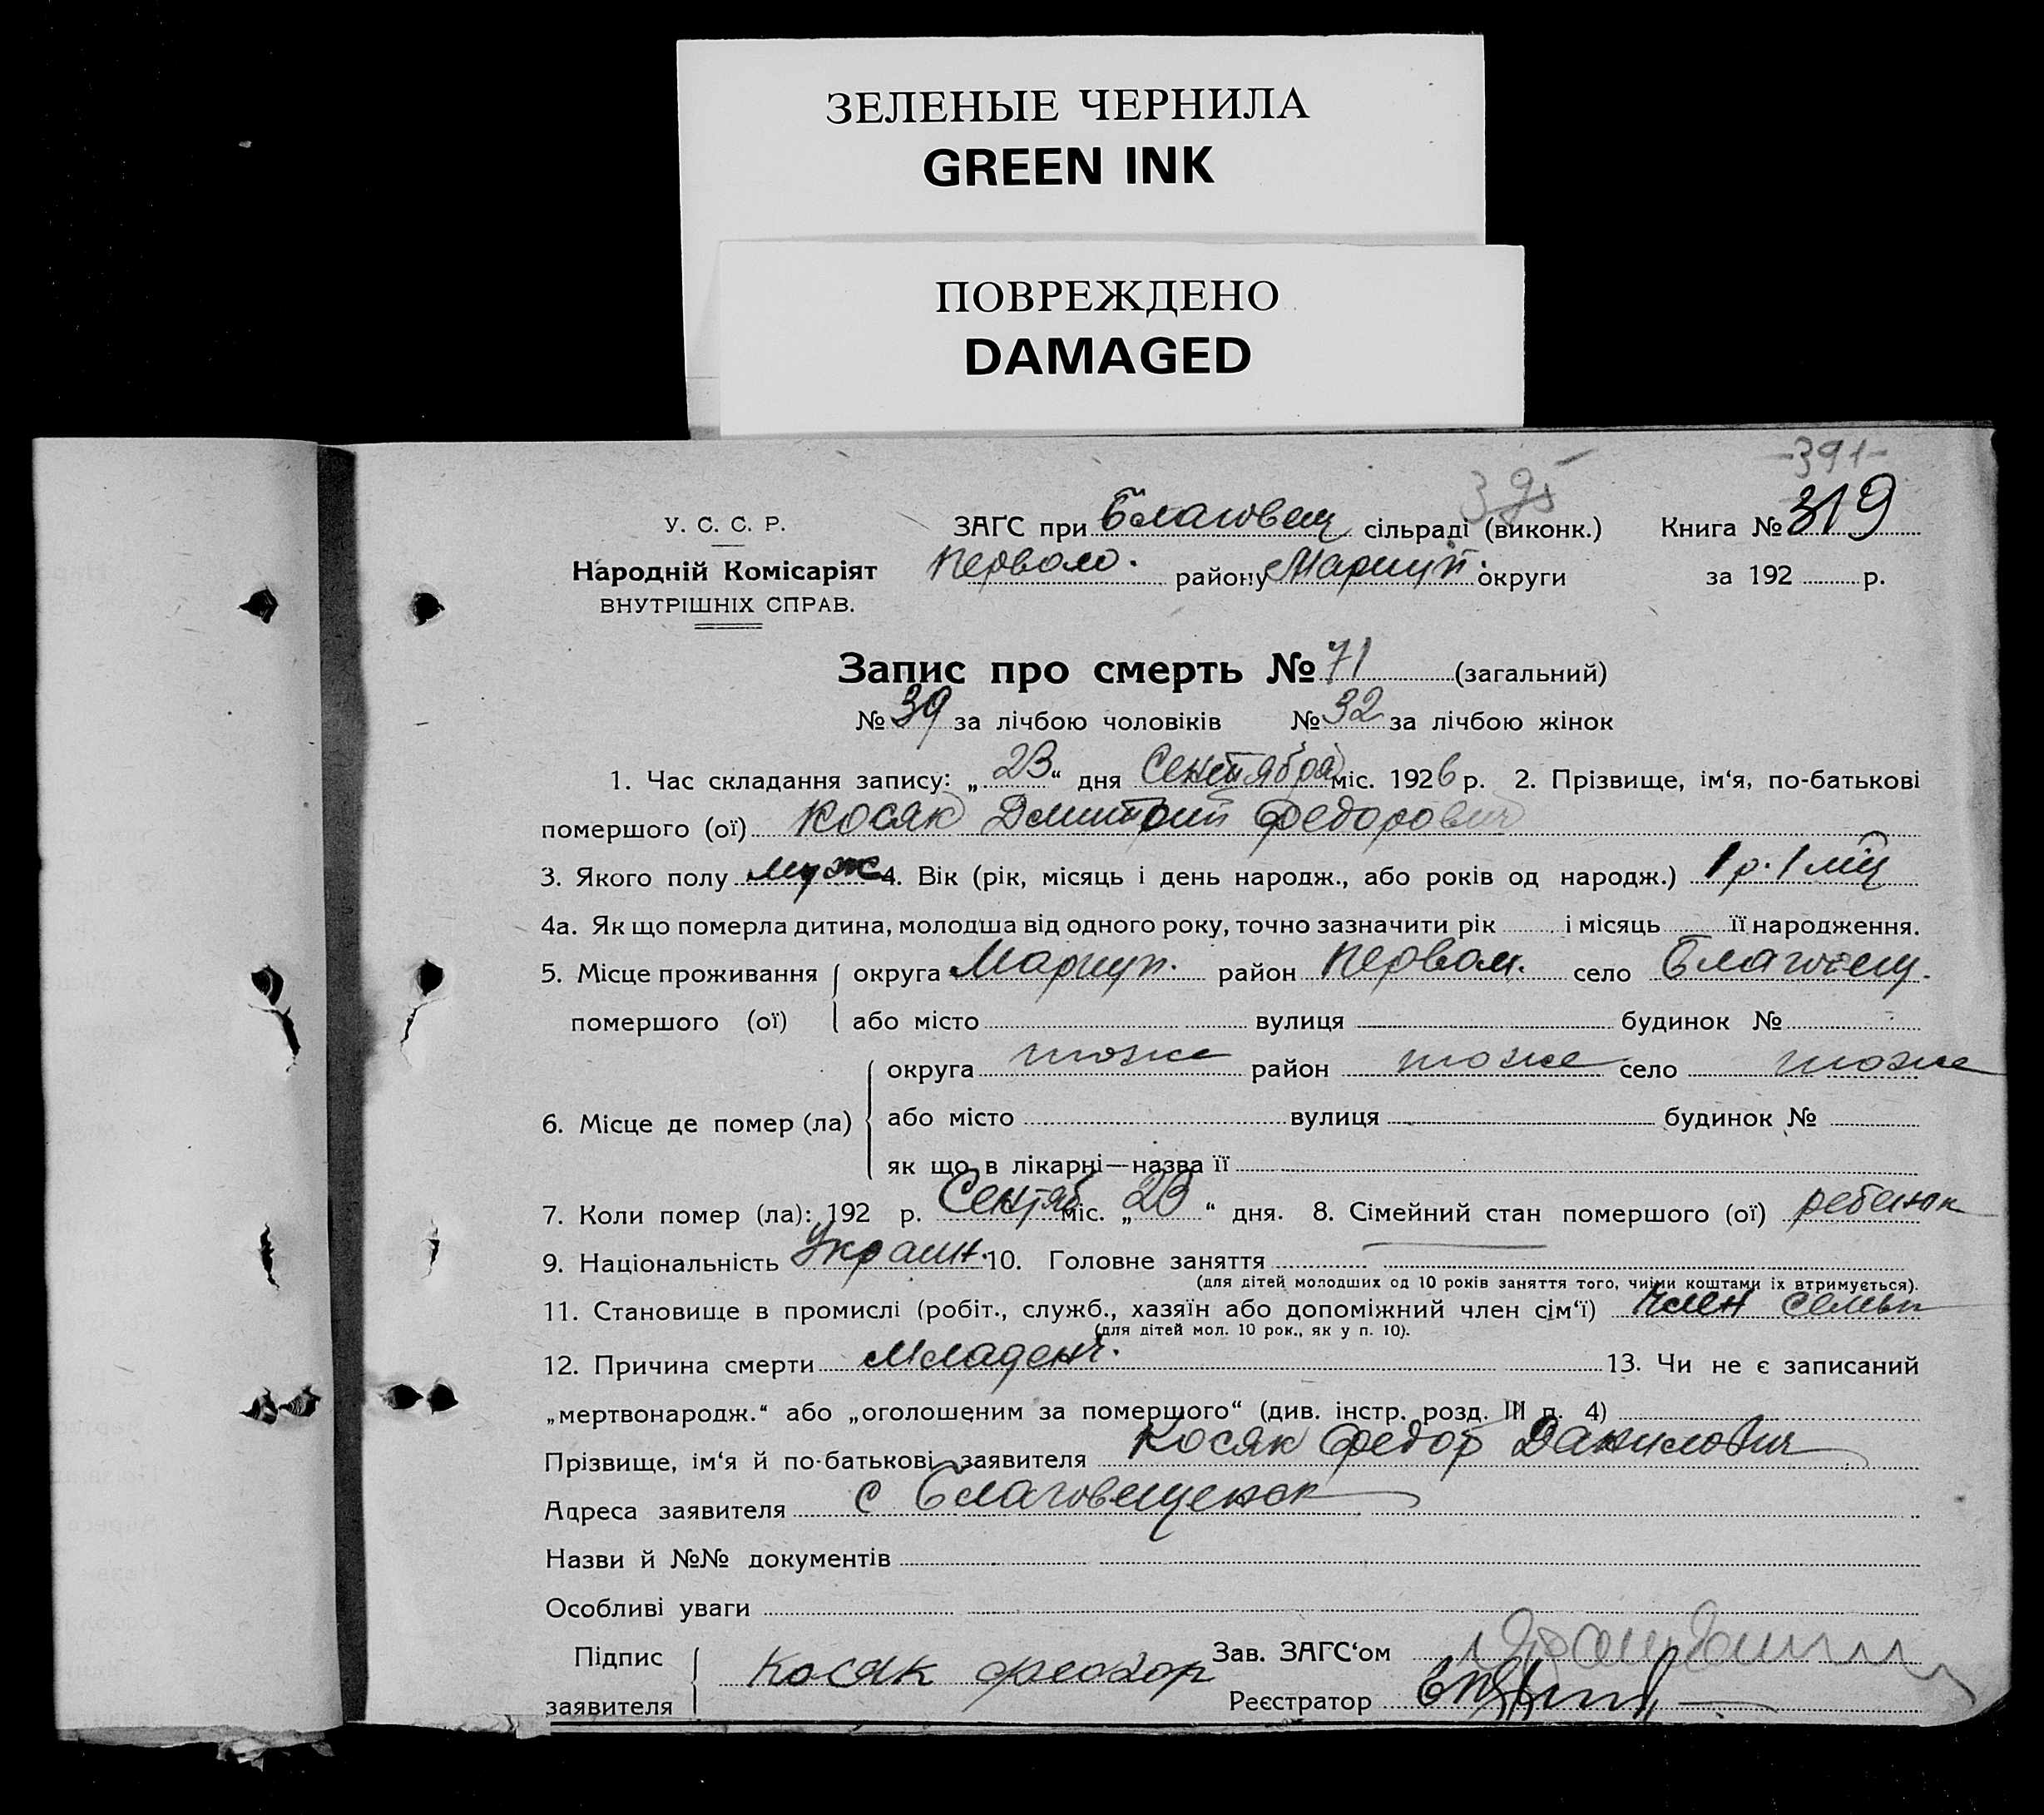 ЗЕЛЕНЫЕ ЧЕРНИЛА
GREEN INK
ПОВРЕЖДЕНО
DAMAGED
-391-
395
У. С. С. Р. ЗАҐС при Благовещ сільраді (виконк.) Книга № 319
Народній Комісаріят Первом. району Мариуп. округи за 192 р.
ВНУТРІШНІХ СПРАВ.
Запис про смерть № 71 (загальний)
№ 39 за лічбою чоловіків № 32 за лічбою жінок
1. Час складання запису: „23“ дня Сентября міс. 1926 р. 2. Прізвище, ім‘я, по-батькові
помершого (ої) Косяк Дмитрий Федорович
3. Якого полу муж 4. Вік (рік, місяць і день народж., або років од народж.) 1 р. 1 міц
4а. Як що померла дитина, молодша від одного року, точно зазначити рік і місяць її народження.
5. Місце проживання округа Мариуп. район Первом. село Благовещ.
помершого (ої) або місто вулиця будинок №
округа тоже район тоже село тоже
6. Місце де помер (ла) або місто вулиця будинок №
як що в лікарні—назва її
7. Коли помер (ла): 192 р. Сентяб міс. „23“ дня. 8. Сімейний стан помершого (ої) ребенок
9. Національність Украин. 10. Головне заняття
(для дітей молодших од 10 років заняття того, чиїми коштами їх втримується).
11. Становище в промислі (робіт., служб., хазяїн або допоміжний член сім‘ї) Член семьи
(для дітей мол. 10 рок., як у п. 10).
12. Причина смерти Младенч. 13. Чи не є записаний
„мертвонародж.“ або „оголошеним за помершого“ (див. інстр. розд. III п. 4)
Прізвище, ім‘я й по-батькові заявителя Косяк Федор Данилович
Адреса заявителя с Благовещенск
Назви й №№ документів
Особливі уваги
Підпис Зав. ЗАГС‘ом
заявителя Косяк феодор Реєстратор